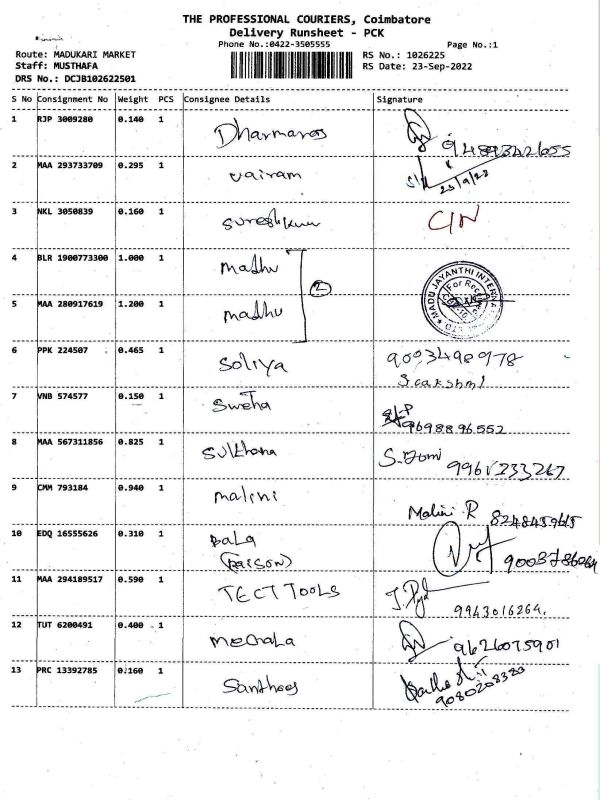 THE PROFESSIONAL COURIERS, Coimbatore
Delivery Runsheet - PCK
Phone No.:0422-3505555 Page No.:1
Route: MADUKARI MARKET RS No.: 1026225
Staff: MUSTHAFA RS Date: 23-Sep-2022
DRS No.: DCJB102622501
S No Consignment No Weight PCS Consignee Details Signature
1 RJP 3009280 0.140 1 Dharmaraj
2 MAA 293733709 0.295 1 vairam
3 NKL 3050839 0.160 1
4 BLR 1900773300 1.000 1 madhu
2
5 MAA 280917619 1.200 1 madhu
MADU JAYANTHI INTERNA
6 PPK 224507 0.465 1 soliya 9003498978
7 VNB 574577 0.150 1 Swetha 9698896552
8 MAA 567311856 0.825 1 Sulthana
9 CMM 793184 0.940 1 malini Malini R
10 EDQ 16555626 0.310 1 BALA 9003786064
11 MAA 294189517 0.590 1 TECT TOOLS 9943016264.
12 TUT 6200491 0.400 1 Mechala 9626075901
13 PRC 13392785 0.160 1 Santhos 9080208320